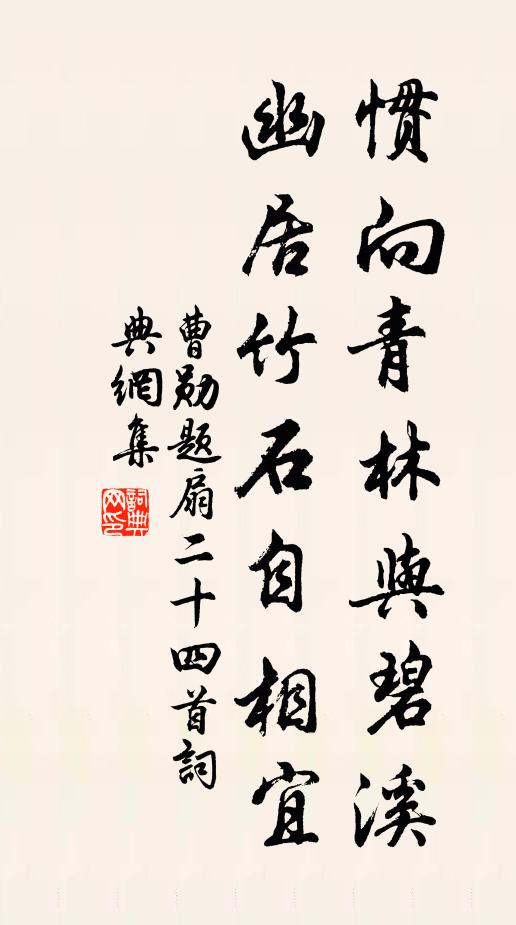 慣向青林與碧溪
幽居竹石自相宜
曹勛題扇二十四首詞
典網集
詞典网印